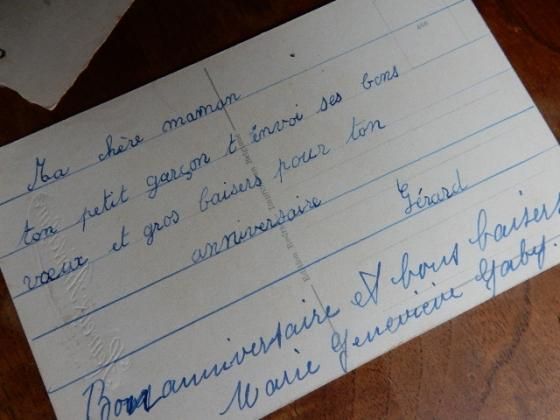 Ma chère maman
ton petit garçon t'envoi ses bons
vœux et gros baisers pour ton
anniversaire Gérard
Bon anniversaire et bons baisers
Marie Geneviève Gaby.